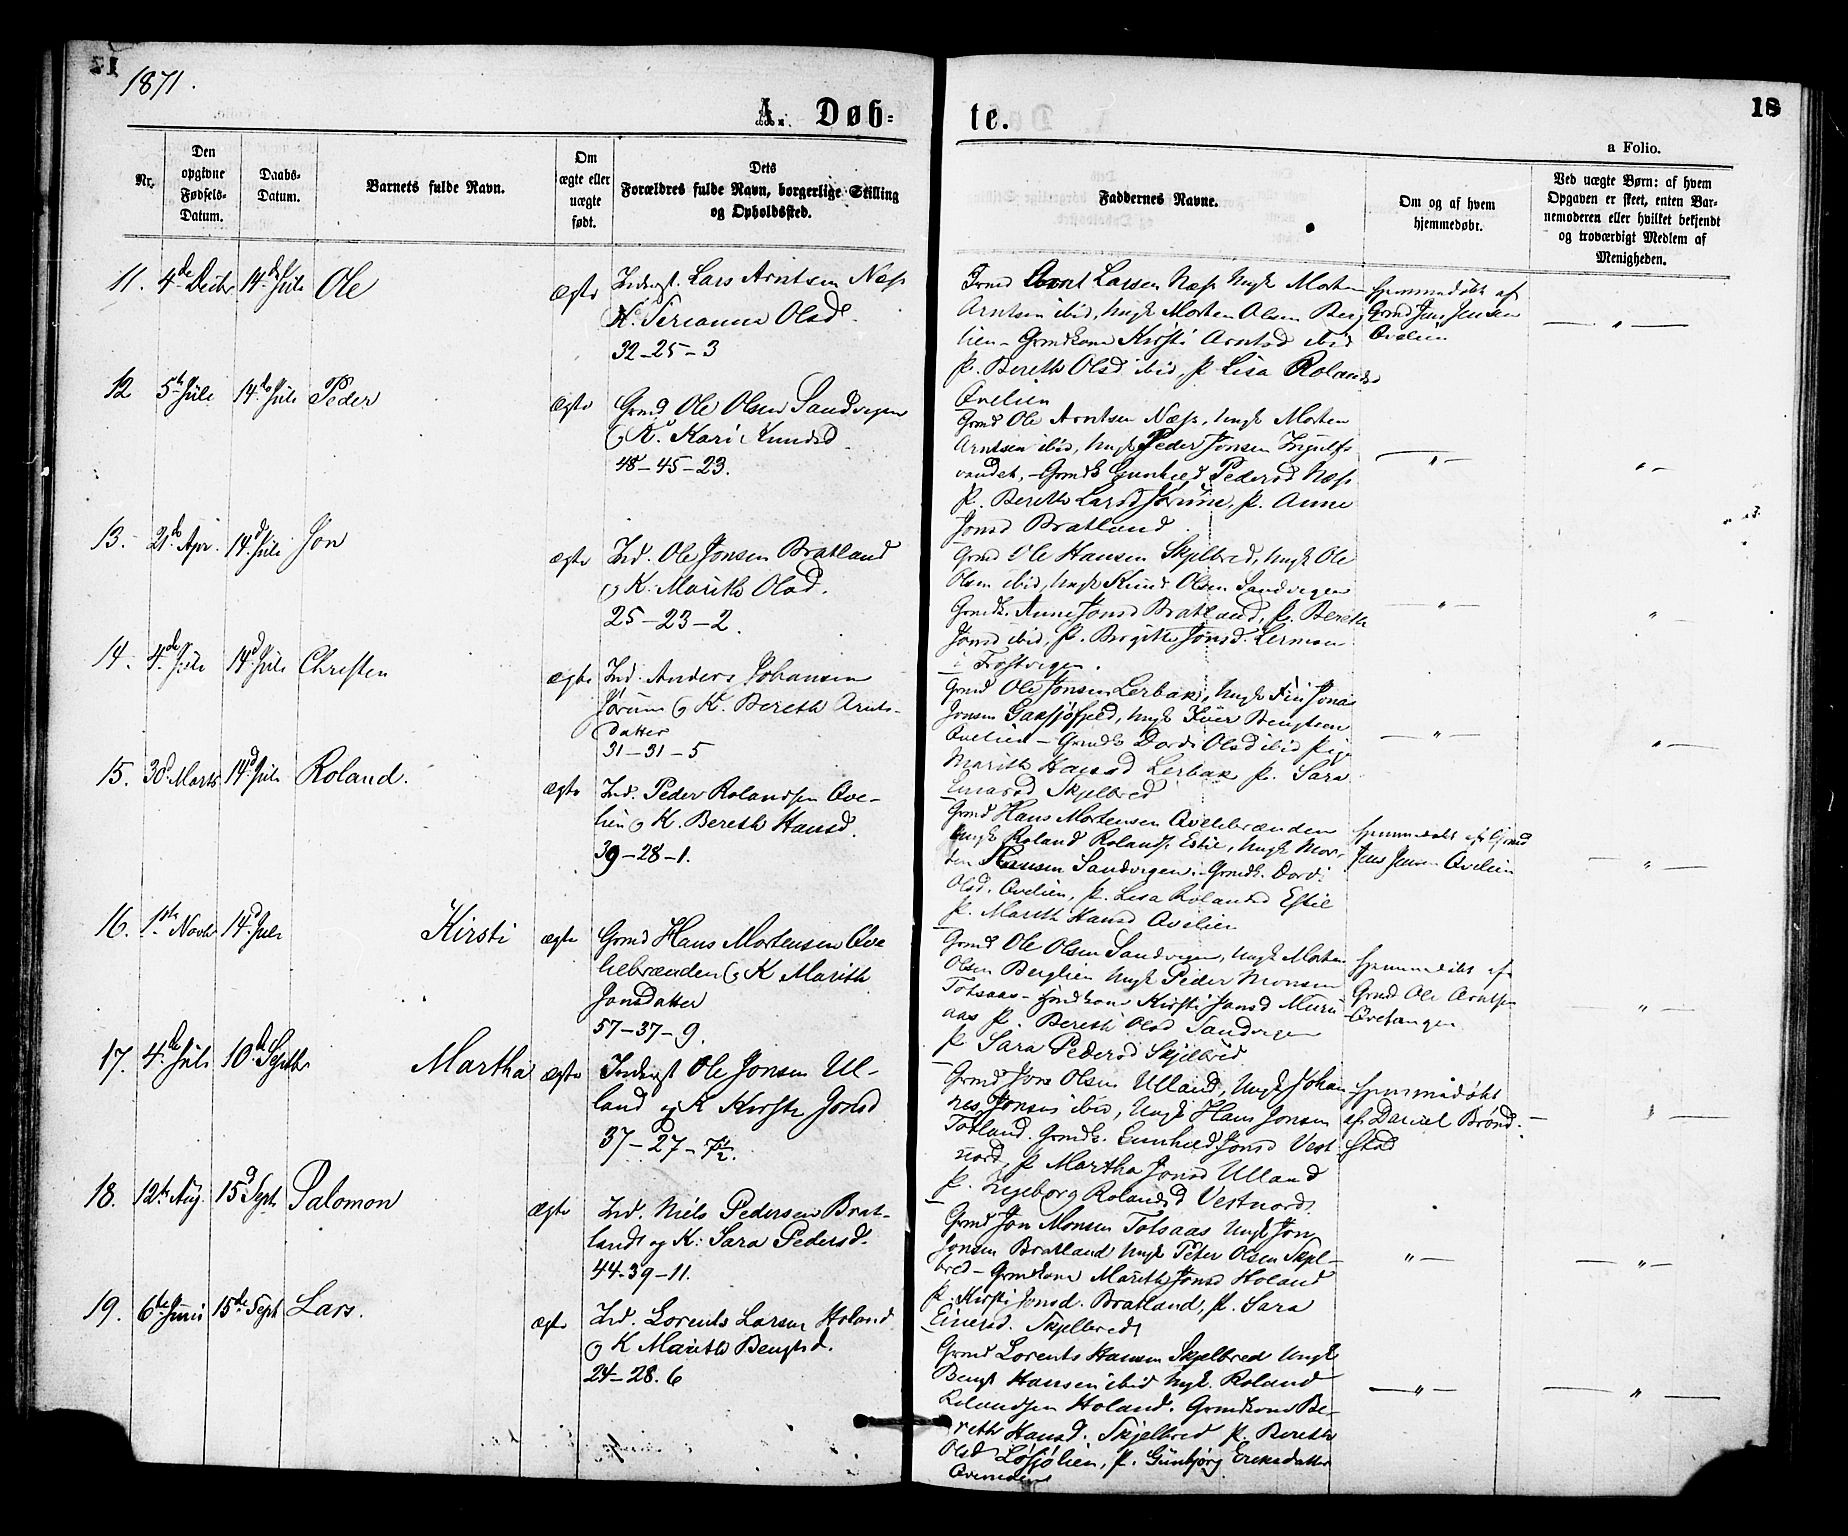 1871.
A. Døb-
te.
18
a Folio.
Nr.
Den
opgivne
Fødsels-
Datum.
Daabs-
Datum.
Barnets fulde Navn.
Om
ægte eller
uægte
født.
Dets
Forældres fulde Navn, borgerlige Stilling
og Opholdssted.
Faddernes Navne.
Om og af hvem
hjemmedøbt.
Ved uægte Børn: af hvem
Opgaven er skeet, enten Bar-
nemoderen eller hvilket bekjendt
og troværdigt Medlem af
Menigheden.
11. 4de Decbr 14de Juli Ole
ægte
Inderst. Lars Arntsen Næss
K. Serianna Olsd.
32-25-3
Grmd Arnt Larsen Næss Ungk Morten
Arntsen ibid, Ungk Morten Olsen Berg
lien - Grmdkone Kirsti Arntsd ibid
p. Bereth Olsd ibid, p. Lisa Rolandsd
Qvelien
Hjemmedøbt af
Grmd Jens Jensen
Qvelien
12 5te Juli 14de Juli Peder
ægte
Grmd Ole Olsen Sandvigen
og K. Kari Knudsd.
48-45-23.
Grmd Ole Arntsen Næss, Ungk Morten
Arntsen ibid, Ungk Peder Jonsen Ingulfs
vandet, - Grmdk Gunhild Pedersd Næss
p. Bereth Larsd Jørum, p. Anne
Jonsd Bratland.
13. 21de Apr. 14d Juli Jon
ægte
Ind. Ole Jonsen Bratland
og K. Marith Olsd.
25-23-2.
Grmd Ole Hansen Skjelbred, Ungk Ole
Olsen ibid, Ungk Knud Olsen Sandvigen
Grmdk. Anne Jonsd Bratland, p. Bereth
Jonsd ibid, p. Birgitte Jonsd. Lermon
i Frostvigen.
14. 4de Juli 14d Juli Christen
ægte
Ind. Anders Johansen
Jørum og K. Bereth Arnts-
datter
31-31-5
Grmd Ole Jonsen Lerbak, Ungk Jonas
Jonsen Ungk Iver Bengtsen
Qvelien - Grmdk Dordi Olsd ibid pige
Marith Hansd Lerbak p. Sara
Einarsd Skjelbred
15. 30d Marts 14d Juli Roland.
ægte
Ind. Peder Rolandsen Qve-
lien og K. Bereth Hansd.
39-28-1.
Grmd Hans Mortensen Qvelibrænden
Ungk Roland Rolands. Estil, Ungk Mor-
ten Hansen Sandvigen. Grmdk. Dordi
Olsd. Qvelien, p. Lisa Rolandsd Estil
p. Marith Hansd Qvelien
Hjemmedøbt af Grmd
Jens Jensen Qvelien
16. 1ste Novbr 14d Juli
Kirsti
ægte
Grmd Hans Mortensen Qve
librænden og K Marith
Jonsdatter
57-37-9.
Grmd Ole Olsen Sandvigen, Ungk Morten
Olsen Berglien Ungk Peder Monsen
Totsaas - Grmdkone Kirsti Jonsd Muru
aas p. Bereth Olsd Sandvigen
p Sara Pedersd Skjelbred
Hjemmedøbt af
Grmd Ole Arntsen
Qvetangen
17. 4de Juli 10de Septbr
Martha
ægte
Inderst Ole Jonsen Ul-
land og K Kirsti Jonsd
37-27-7½.
Grmd Jon Olsen Ulland, Ungk Johan
nes Jonsen ibid, Ungk Hans Jonsen
Totland. Grmdk. Gunhild Jonsd Vest
nord, p Martha Jonsd Ulland
p. Ingeborg Rolandsd Vestnord.
Hjemmedøbt
af Daniel Brønd-
stad
18. 12te Aug. 15d Septb Salomon
ægte
Ind. Niels Pedersen Brat-
land og K: Sara Pedersd.
44-39-11.
Grmd Jon Monsen Totsaas Ungk Jon
Jonsen Bratland Ungk Peter Olsen Skjel-
bred - Grmdkone Marith Jonsd Holand
p. Kirsti Jonsd. Bratland, p. Sara
Einersd. Skjelbred
19. 6te Juni 15de Septb Lars.
ægte
Ind. Lorents Larsen Holand
og K Marith Bengtsd.
24-28.6
Grmd Lorents Hansen Skjelbred Ungk
Bengt Hansen ibid Ungk. Roland
Rolandsen Holand. Grmdkone Be-
reth Hansd. Skjelbred p. Bereth
Olsd Løfsjølien, p. Gunbjørg Eriksdatter
Qvemoen